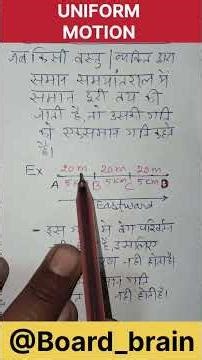 UNIFORM
MOTION
जब किसी वस्तु / व्यक्ति द्वारा
समान समयांतराल में
समान दूरी तय की
जाती है, तो उसकी गति
को एकसमान गति कहते
है।
Ex
20m 20m 20m
A 5 B 5 C 5 D
Eastward
- इस में वेग परिवर्तन
नहीं है, इसलिए
नही होता है।
गति
नहीं होती है।
@Board_brain